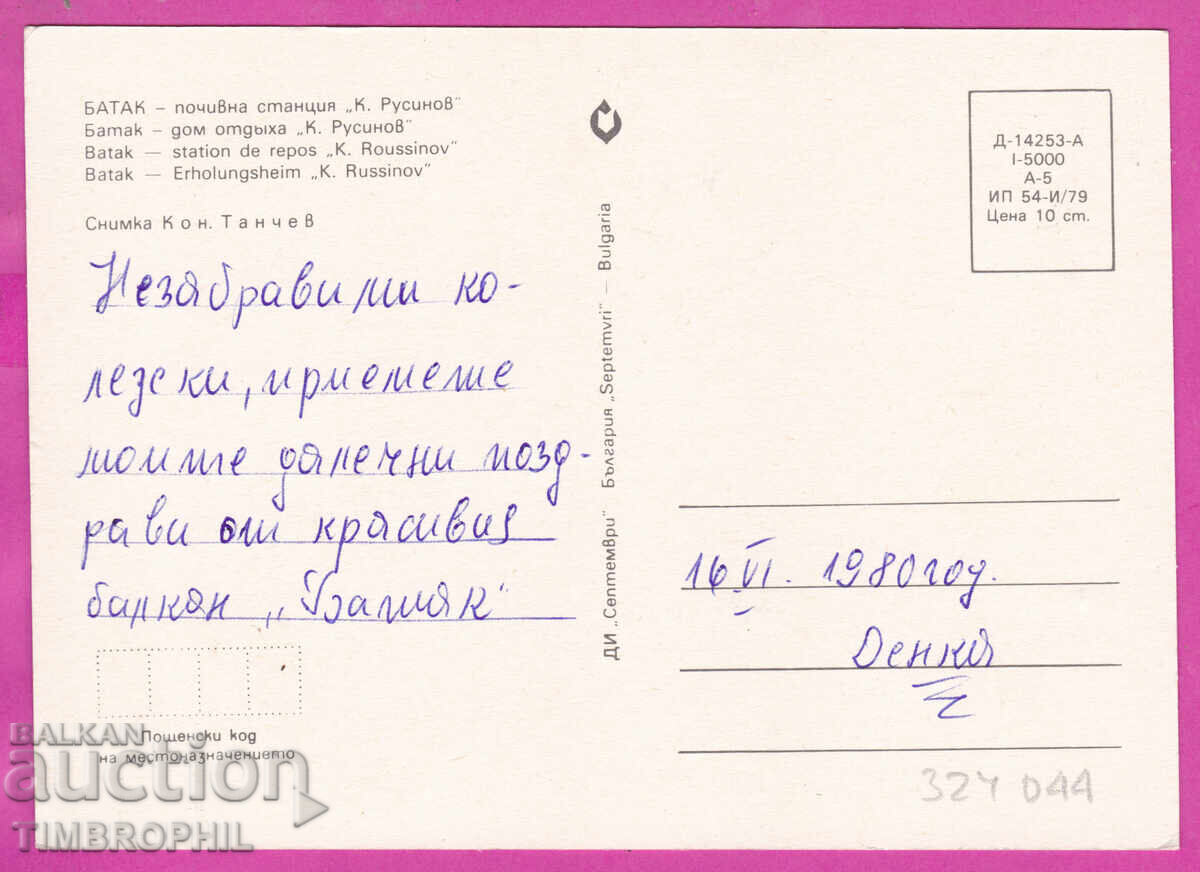 БАТАК – почивна станция „К. Русинов"
Батак – дом отдыха „К. Русинов"
Batak — station de repos „K. Roussinov"
Batak — Erholungsheim „K. Russinov"
Снимка Кон. Танчев
Незабравими ко-
лезски, приемете
моите далечни позд-
рави от красивия
балкан „Батак"
Пощенски код
на местоназначението
ДИ „Септември" България „Septemvri" — Bulgaria
Д-14253-А
I-5000
А-5
ИП 54-И/79
Цена 10 ст.
16 VI. 1980 год.
Денка
324044
BALKAN
auction
TIMBROPHIL